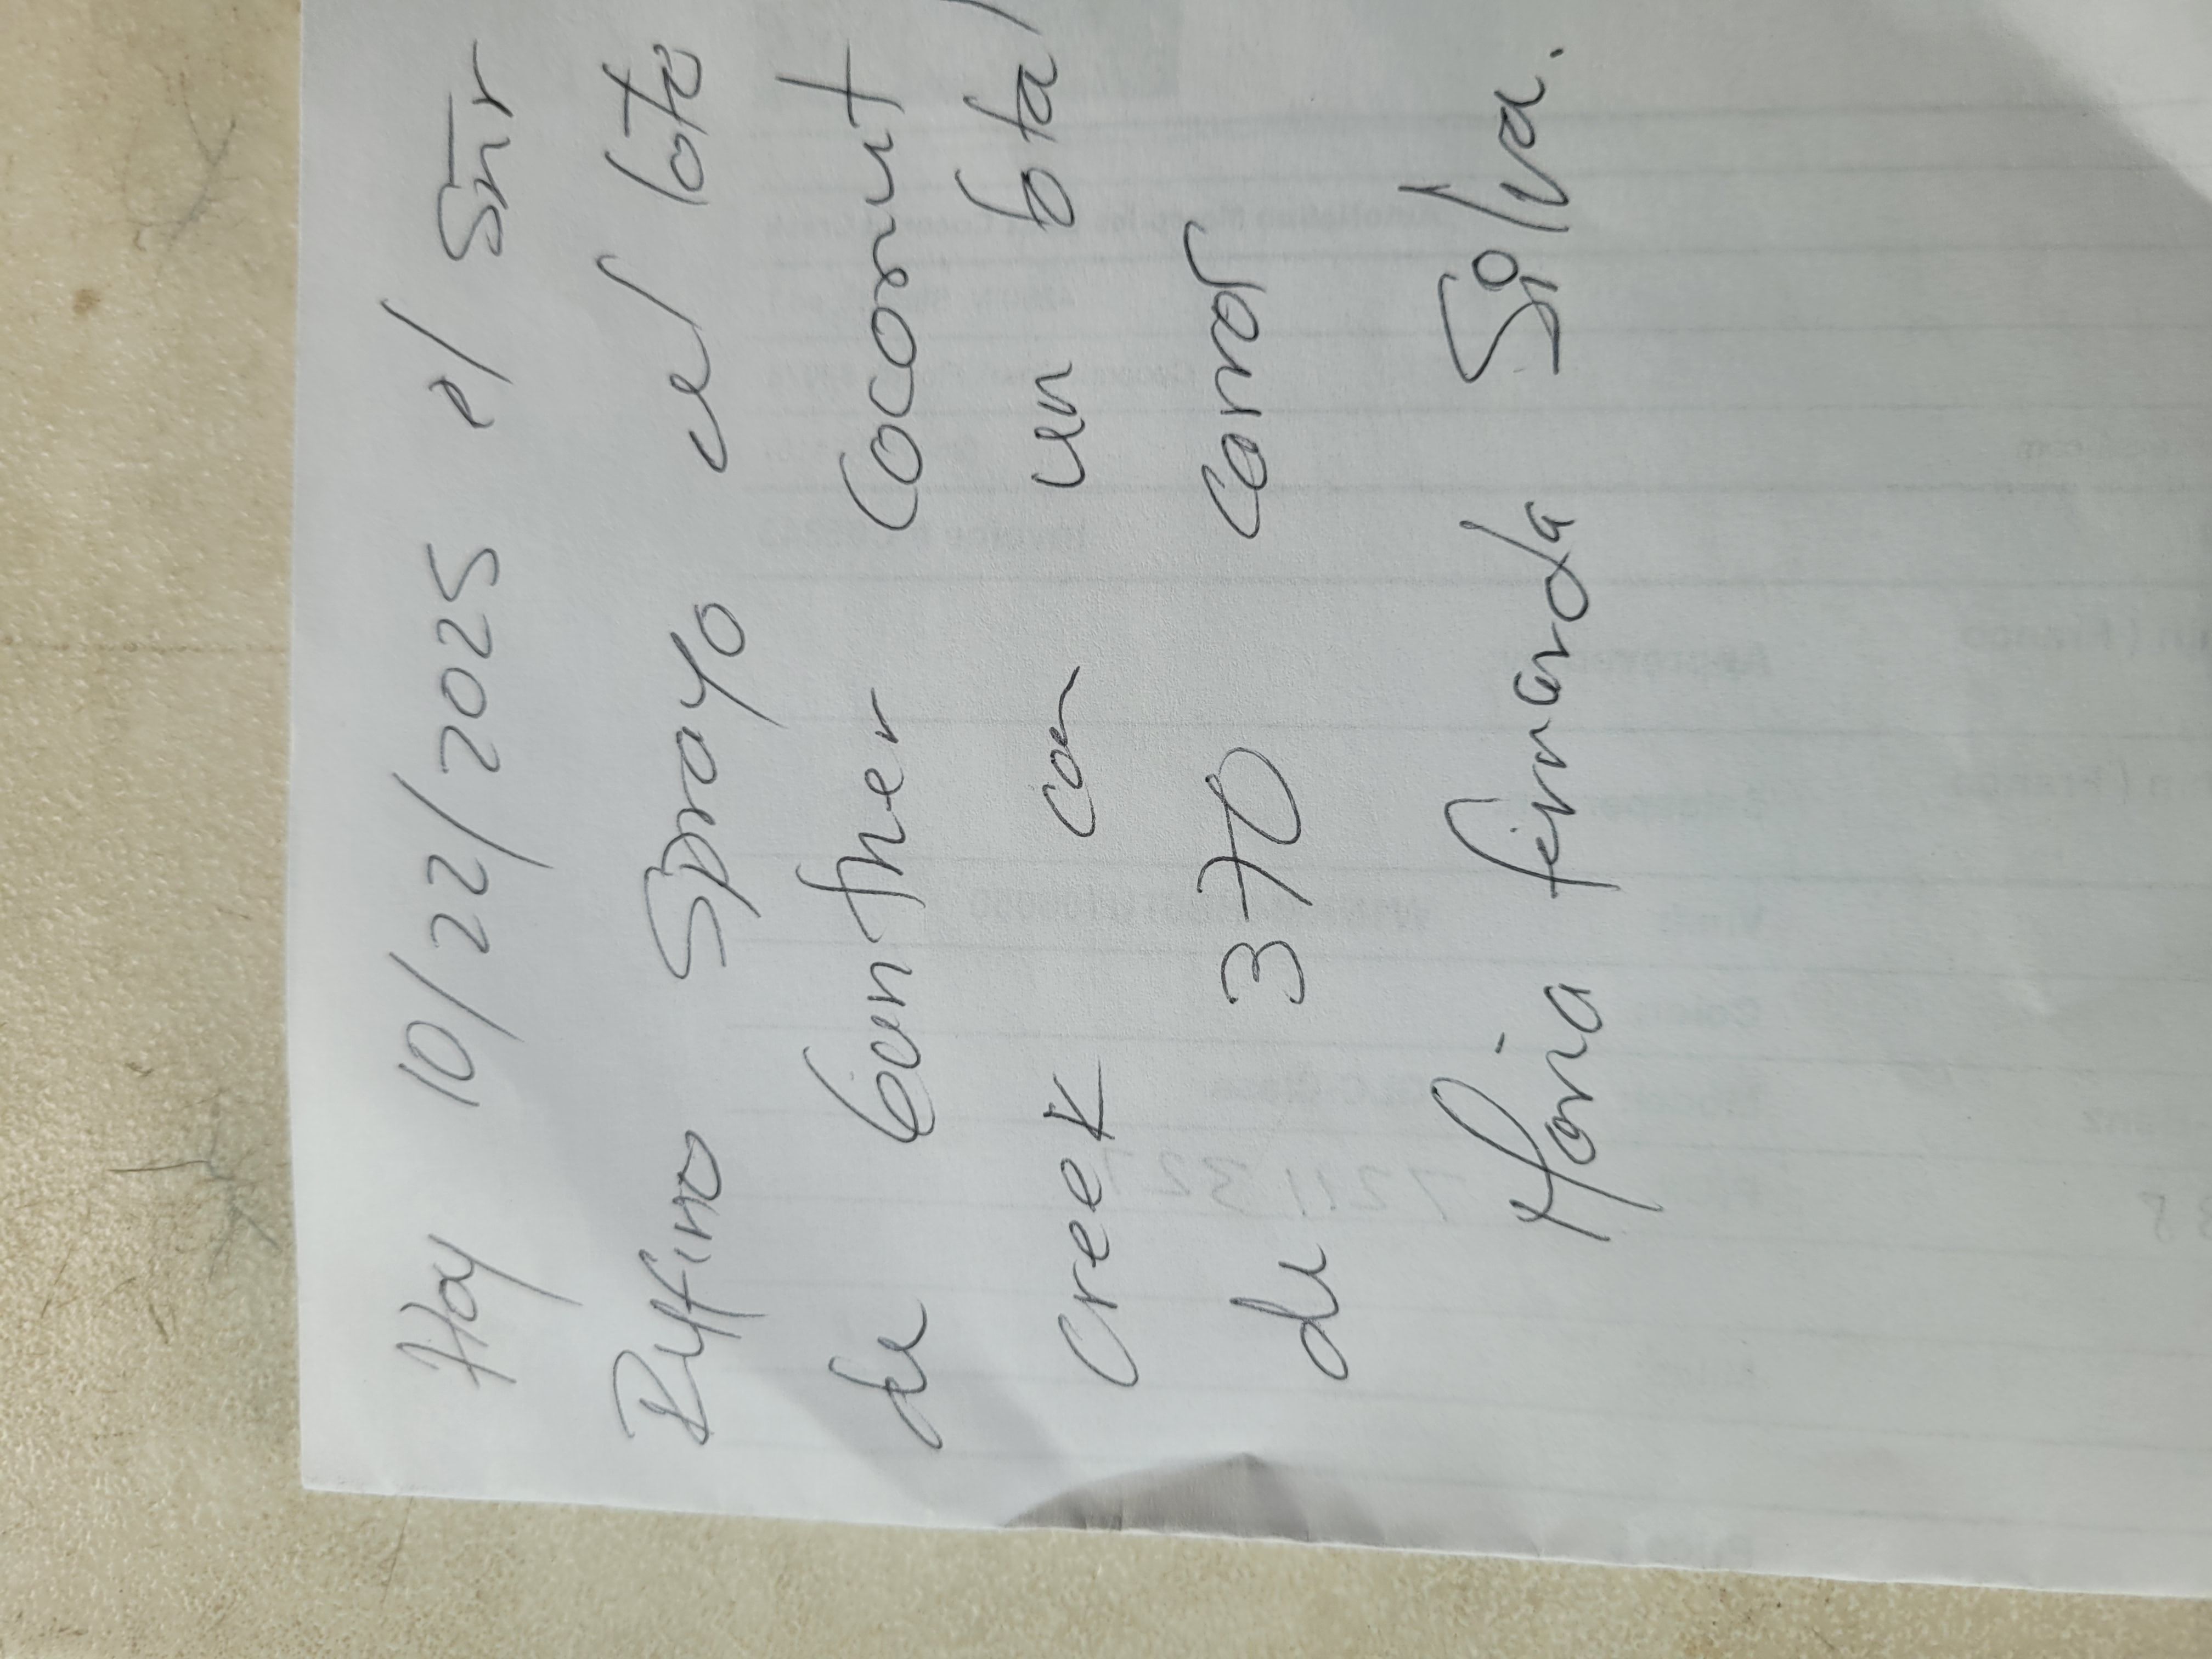 Hoy 10/22/2025 el Sñr
Ruffino Sprayo el lote
de Gunther Coconut
Creek con un total
de 370 carros
Maria fernanda Silva.